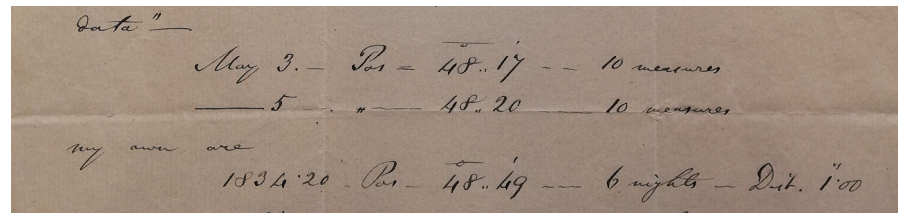 data" —
May 3. — Pos = 48°.. 17' — — 10 measures
—— 5 . " —— 48.. 20 —— 10 measures
my own are
1834.20 - Pos — 48°.. 49' — — 6 nights — Dist. 1".00